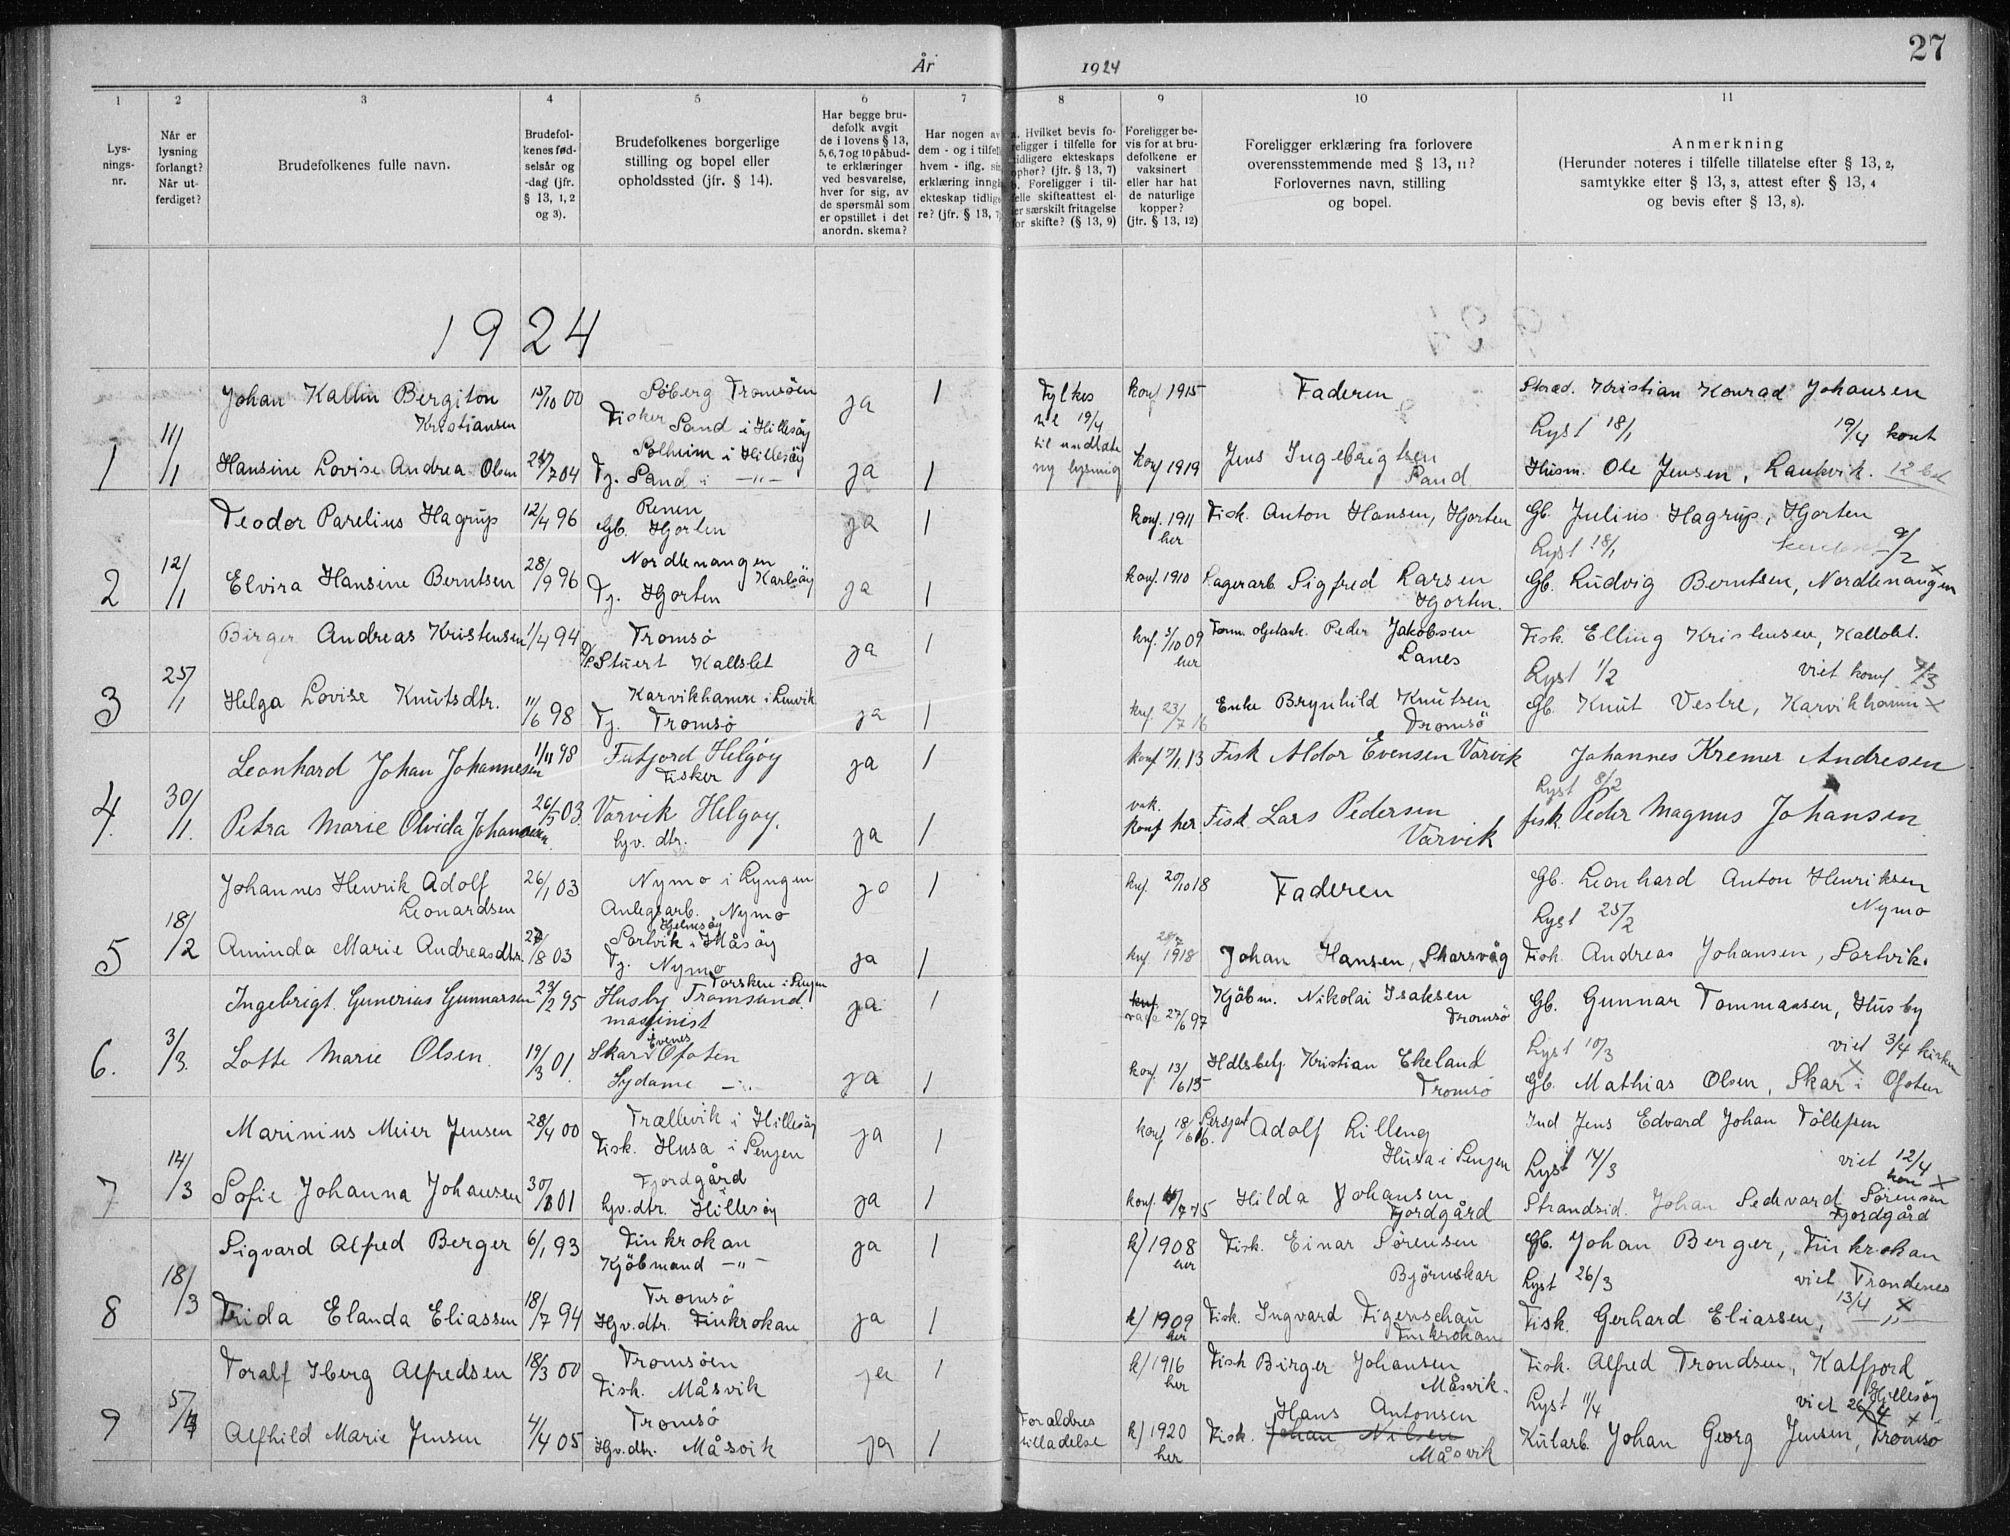 27
År 1924
1 2 3 4 5 6 7 8 9 10 11
Lysningsnr.
Når er lysning forlangt? Når utferdiget?
Brudefolkenes fulle navn.
Brudefolkenes fødselsår og -dag (jfr. § 13, 1, 2 og 3).
Brudefolkenes borgerlige stilling og bopel eller opholdssted (jfr. § 14).
Har begge brudefolk avgit de i lovens § 13, 5, 6, 7 og 10 påbudte erklæringer ved besvarelse, hver for sig, av de spørsmål som er opstillet i det anordn. skema?
Har nogen av dem - og i tilfelle hvem - iflg. sin erklæring inngått ekteskap tidligere? (jfr. § 13, 7)
a. Hvilket bevis foreligger i tilfelle for tidligere ekteskaps ophør? (jfr. § 13, 7) b. Foreligger i tilfelle skifteattest eller særskilt fritagelse for skifte? (§ 13, 9)
Foreligger bevis for at brudefolkene er vaksinert eller har hat de naturlige kopper? (jfr. § 13, 12)
Foreligger erklæring fra forlovere overensstemmende med § 13, 11? Forlovernes navn, stilling og bopel.
Anmerkning (Herunder noteres i tilfelle tillatelse efter § 13, 2, samtykke efter § 13, 3, attest efter § 13, 4 og bevis efter § 13, 8).
1924
Johan Kallin Bergiton Kristiansen 15/10 00 Söberg Tromsöen Fisker Sand i Hillesöy ja 1 Fylkes 19/4 til undlate ny lysning konf 1915 Faderen Kristian Konrad Johansen
Lyst 18/1 19/4 kont
1 11/1 Hansine Lovise Andrea Olsen 7 04 Solheim i Hillesöy Tj. Sand i -"- ja 1 konf 1919 Jens Ingebrigtsen Sand Husm. Ole Jensen, Laukvik.
Teodor Parelius Hagrup 12/4 96 Renen Gb. Hjorten ja 1 konf. 1911 her Fisk. Anton Hansen, Hjorten Gb. Julius Hagrup, Hjorten
Lyst 18/1 9/2
2 12/1 Elvira Hansine Berntsen 28/9 96 Nordlenangen Karlsöy Tj. Hjorten ja 1 konf. 1910 Lagerarb. Sigfred Larsen Hjorten. Gb. Ludvig Berntsen, Nordlenangen x
Birger Andreas Kristensen 1/4 94 Tromsö Stuert Kallslet ja 1 knf. 5/10 09 her Peder Jakobsen Lanes Fisk. Elling Kristensen, Kallslet.
Lyst 1/2 viet konf 7/3
3 25/1 Helga Lovise Knutsdtr. 11/6 98 Karvikhamn i Lenvik Tj. Tromsö ja 1 knf. 23/7 16 Enke Brynhild Knutsen Tromsö Gb. Knut Vestre, Karvikhamn x
Leonhard Johan Johannesen 1/11 98 Futfjord Helgöy Fisker ja 1 konf 7/1 13 Fisk Aldor Evensen Varvik Johannes Kremer Andresen
Lyst 8/2
4. 30/1. Petra Marie Olvida Johansen 26/5 03. Varvik Helgoy. hjv. dtr. ja 1 vak. konf her. Fisk Lars Pedersen Varvik fisk. Peder Magnus Johansen
Johannes Henrik Adolf Leonardsen 26/1 03 Nymo i Lyngen Anlegsarb. Nymo ja 1 knf. 20/10 18 Faderen Gb. Leonhard Anton Henriksen Nymo
Lyst 25/2
5 18/2 Aminda Marie Andreasdtr. 27/8 03 Hjelmsöy Sortvik i Måsöy Tj. Nymo ja 1 knf 1918 Johan Hansen, Skarsvåg Fisk. Andreas Johansen, Sortvik.
Ingebrigt Gunerius Gunnarsen 29/2 95 Torsken i Senjen Husby Tromsund. maskinist ja 1 27/6 97 Kjöbm. Nikolai Isaksen Tromsö Gb. Gunnar Tommassen, Husby
Lyst 10/3 viet 3/4 kirken x
6. 3/3. Lotte Marie Olsen 19/3 01. Skar i Evenes Ofoten Sydame -"- ja 1 konf. 13/6 15 Hdlsbetj. Kristian Ekeland Tromsö Gb. Mathias Olsen, Skar i Ofoten
Marinius Meier Jensen 28/4 00 Trællevik i Hillesöy Fisk. Husa i Senjen ja 1 konf 18/6 16. Adolf Lilleng Husa i Senjen Ind Jens Edvard Johan Töllefsen
Lyst 14/3 viet 12/4 x
7 14/3 Sofie Johanna Johansen 01 Fjordgård hjv.dtr. Hillesöy ja 1 konf. 7 15 Hilda Johansen Fjordgård Strandsid. Johan Sedvard Sörensen Fjordgård
Sigvard Alfred Berger 6/1 93 Finkrokan Kjöbmand -"- ja 1 k/ 1908 her Fisk. Einar Sörensen Björnskar Gb. Johan Berger, Finkrokan
Lyst 26/3 viet Trondenes 13/4 x
8 18/3 Frida Elanda Eliassen 18/7 94 Tromsö Hjv.dtr. Finkrokan ja 1 k/ 1909 her Fisk. Ingvard Figenschau Finkrokan Fisk. Gerhard Eliassen, -"-
Toralf Iberg Alfredsen 18/3 00 Tromsöen Fisk. Måsvik ja 1 k/ 1916 her Fisk Birger Johansen Måsvik. Fisk. Alfred Trondsen, Katfjord Hillesöy
Lyst 11/4 viet 26/4 x
9 5/4 Alfhild Marie Jensen 4/4 05 Tromsö Hjv.dtr. Måsvik ja 1 Foraldres tilladelse k/ 1920 her Fisk. Hans Antonsen Johan Nilsen Måsvik Kularb. Johan Georg Jensen, Tromsö